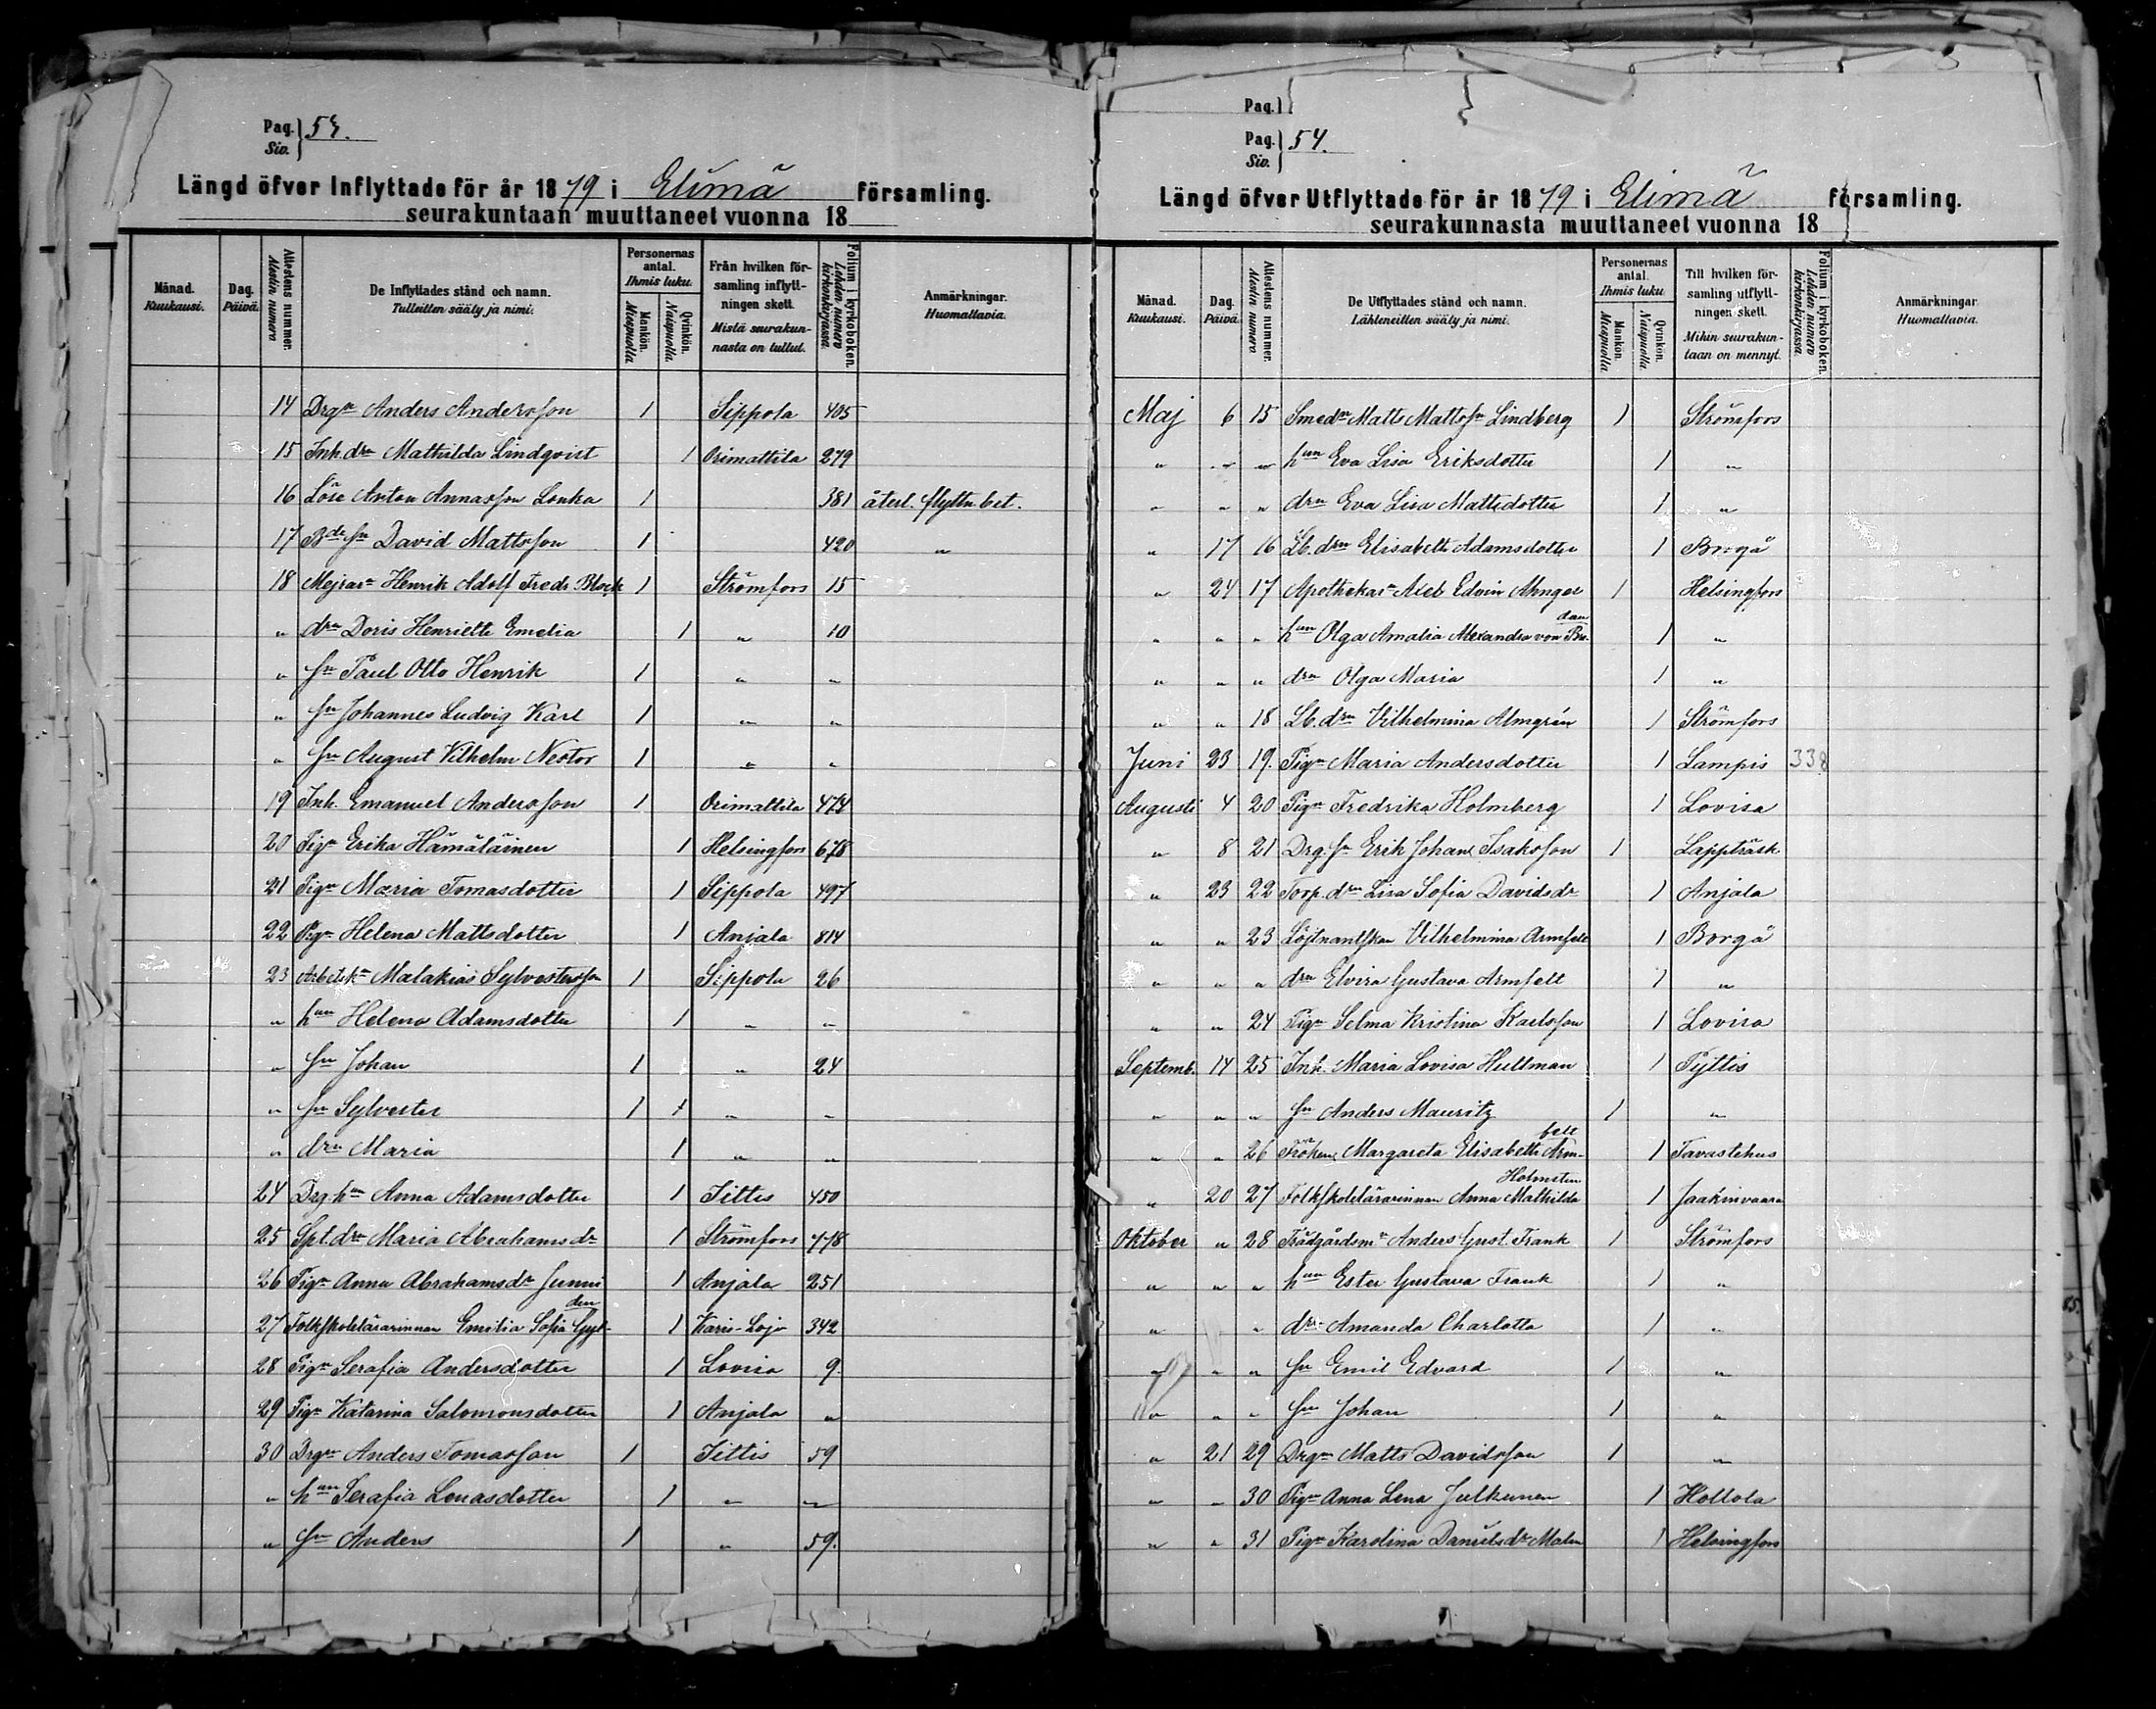 Pag. 53.
Siv.
Längd öfver Inflyttade för år 1879 i Elimä församling.
seurakuntaan muuttaneet vuonna 18
Månad. Kuukausi. Dag. Päivä. Attestens nummer. Alestin numero De Inflyttades stånd och namn. Tulleitten sääty ja nimi. Personernas antal. Ihmis luku. Mankön. Miespuolia Qvinkön. Naispuolia Från hvilken församling inflyttningen skett. Mistä seurakunnasta on tullut. Folium i kyrkoboken. Lehden numero kirkonkirjassa. Anmärkningar. Huomattavia.
14 Drgn Anders Andersson 1 Sippola 405
15 Inh. drn Mathilda Lindqvist 1 Orimattila 279
16 Löse Anton Annasson Lonka 1 381 återl. flyttn.bet.
17 Bde sn David Mattsson 1 420 "
18 Mejrarn Henrik Adolf Fredr. Block 1 Strömfors 15
" drn Doris Henriette Emelia 1 " 10
" sn Paul Otto Henrik 1 " "
" sn Johannes Ludvig Karl 1 " "
" sn August Vilhelm Nestor 1 " "
19 Inh. Emanuel Andersson 1 Orimattila 474
20 Pign Erika Hämäläinen 1 Helsingfors 678
21 Pign Maria Tomasdotter 1 Sippola 497
22 Pign Helena Mattsdotter 1 Anjala 814
23 Arbetsk. Malakias Sylvestersson 1 Sippola 26
" hun Helena Adamsdotter 1 " "
" sn Johan 1 " 24
" sn Sylvester 1 1 " "
" drn Maria 1 " "
24 Drg. hun Anna Adamsdotter 1 Jittis 450
25 Spt. drn Maria Abrahamsdr 1 Strömfors 448
26 Pign Anna Abrahamsdr Junni 1 Anjala 251
27 Folkskolelärarinnan Emilia Sofia Gylden 1 Karis-Lojo 342
28 Pign Serafia Andersdotter 1 Lovisa 9.
29 Pign Katarina Salomonsdotter 1 Anjala "
30 Drgn Anders Tomasson 1 Jittis 59
" hun Serafia Lenasdotter 1 " "
" sn Anders 1 " 59.
Pag.
Pag. 54.
Siv.
Längd öfver Utflyttade för år 1879 i Elimä församling.
seurakunnasta muuttaneet vuonna 18
Månad. Kuukausi. Dag. Päivä Attestens nummer. Alestin numero De Utflyttades stånd och namn. Lähteneitten sääty ja nimi. Personernas antal. Ihmis luku Mankön. Miespuolia Qvinkön. Naispuolia Till hvilken församling utflyttningen skett. Mihin seurakuntaan on mennyt. Folium i kyrkoboken. Lehden numero kirkonkirjassa. Anmärkningar. Huomattavia.
Maj 6 15 Smedn Matts Mattssn Lindberg 1 Strömfors
" " " hun Eva Lisa Eriksdotter 1 "
" " " drn Eva Lisa Mattsdotter 1 "
" 17 16 Lb. drn Elisabeth Adamsdotter 1 Borgå
" 24 17 Apothekarn Axel Edvin Ahnger 1 Helsingfors
" " " hun Olga Amalia Alexandra von 1 "
" " " drn Olga Maria 1 "
" " 18 Lb. drn Vilhelmina Almgrén 1 Strömfors
Juni 23 19. Pign Maria Andersdotter 1 Lampis 338
Augusti 4 20 Pign Fredrika Holmberg 1 Lovisa
" 8 21 Drg. sn Erik Johan Isaksson 1 Lappträsk
" 23 22 Torp. drn Lisa Sofia Davidsdr 1 Anjala
" " 23 Löjtnantskan Vilhelmina Armfelt 1 Borgå
" " " drn Elvira Gustava Armfelt 1 "
" " 24 Pign Selma Kristina Karlsson 1 Lovisa
Septemb. 14 25 Inh. Maria Lovisa Hultman 1 Pyttis
" " " sn Anders Mauritz 1 "
" " 26 Fröken Margareta Elisabeth Armfelt 1 Tavastehus
" 20 27 Folkskolelärarinnan Anna Mathilda Holmsten 1 Jaakinvaara
Oktober " 28 Trädgårdsm. Anders Gust. Frank 1 Strömfors
" " " hun Ester Gustava Frank 1 "
" " drn Amanda Charlotta 1 "
" " " sn Emil Edvard 1 "
" " " sn Johan 1 "
" 21 29 Drgn Matts Davidsson 1 "
" " 30 Pign Anna Lena Julkunen 1 Hollola
" " 31 Pign Karolina Danielsdr Malm 1 Helsingfors